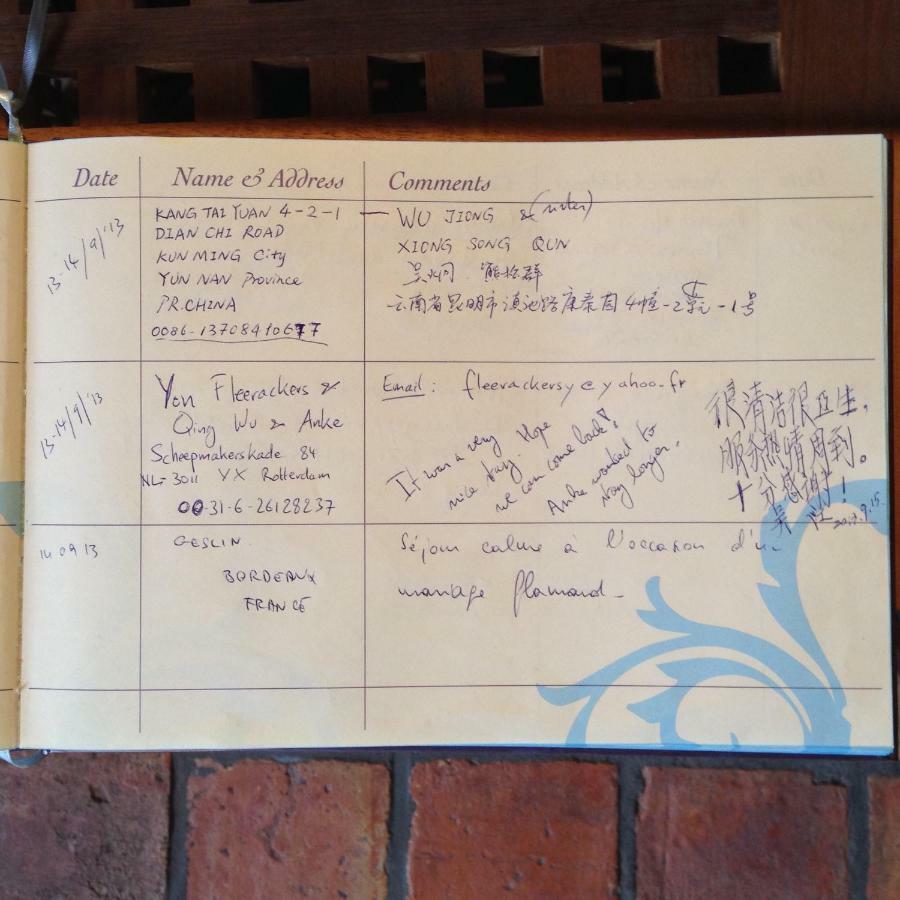 Date Name & Address Comments
13-14/9/'13
KANG TAI YUAN 4-2-1 — WU JIONG & (sister)
DIAN CHI ROAD
XIONG SONG QUN
KUN MING City
吴炯 熊松群
YUN NAN Province
云南省昆明市滇池路康泰园4幢-2单元-1号
P.R.CHINA
0086-13708410677
13-14/9/'13
Yon Fleerackers &
Qing Wu & Anke
Scheepmakerskade 84
NL-3011 VX Rotterdam
00-31-6-26128237
Email: fleerackersy@yahoo.fr
It was a very
nice stay. Hope
we can come back!
Anke wanted to
stay longer.
很清洁很卫生,
服务热情周到。
十分感谢!
吴
14 09 13
GESLIN.
BORDEAUX
FRANCE
Séjour calme à l'occasion d'un
mariage flamand_